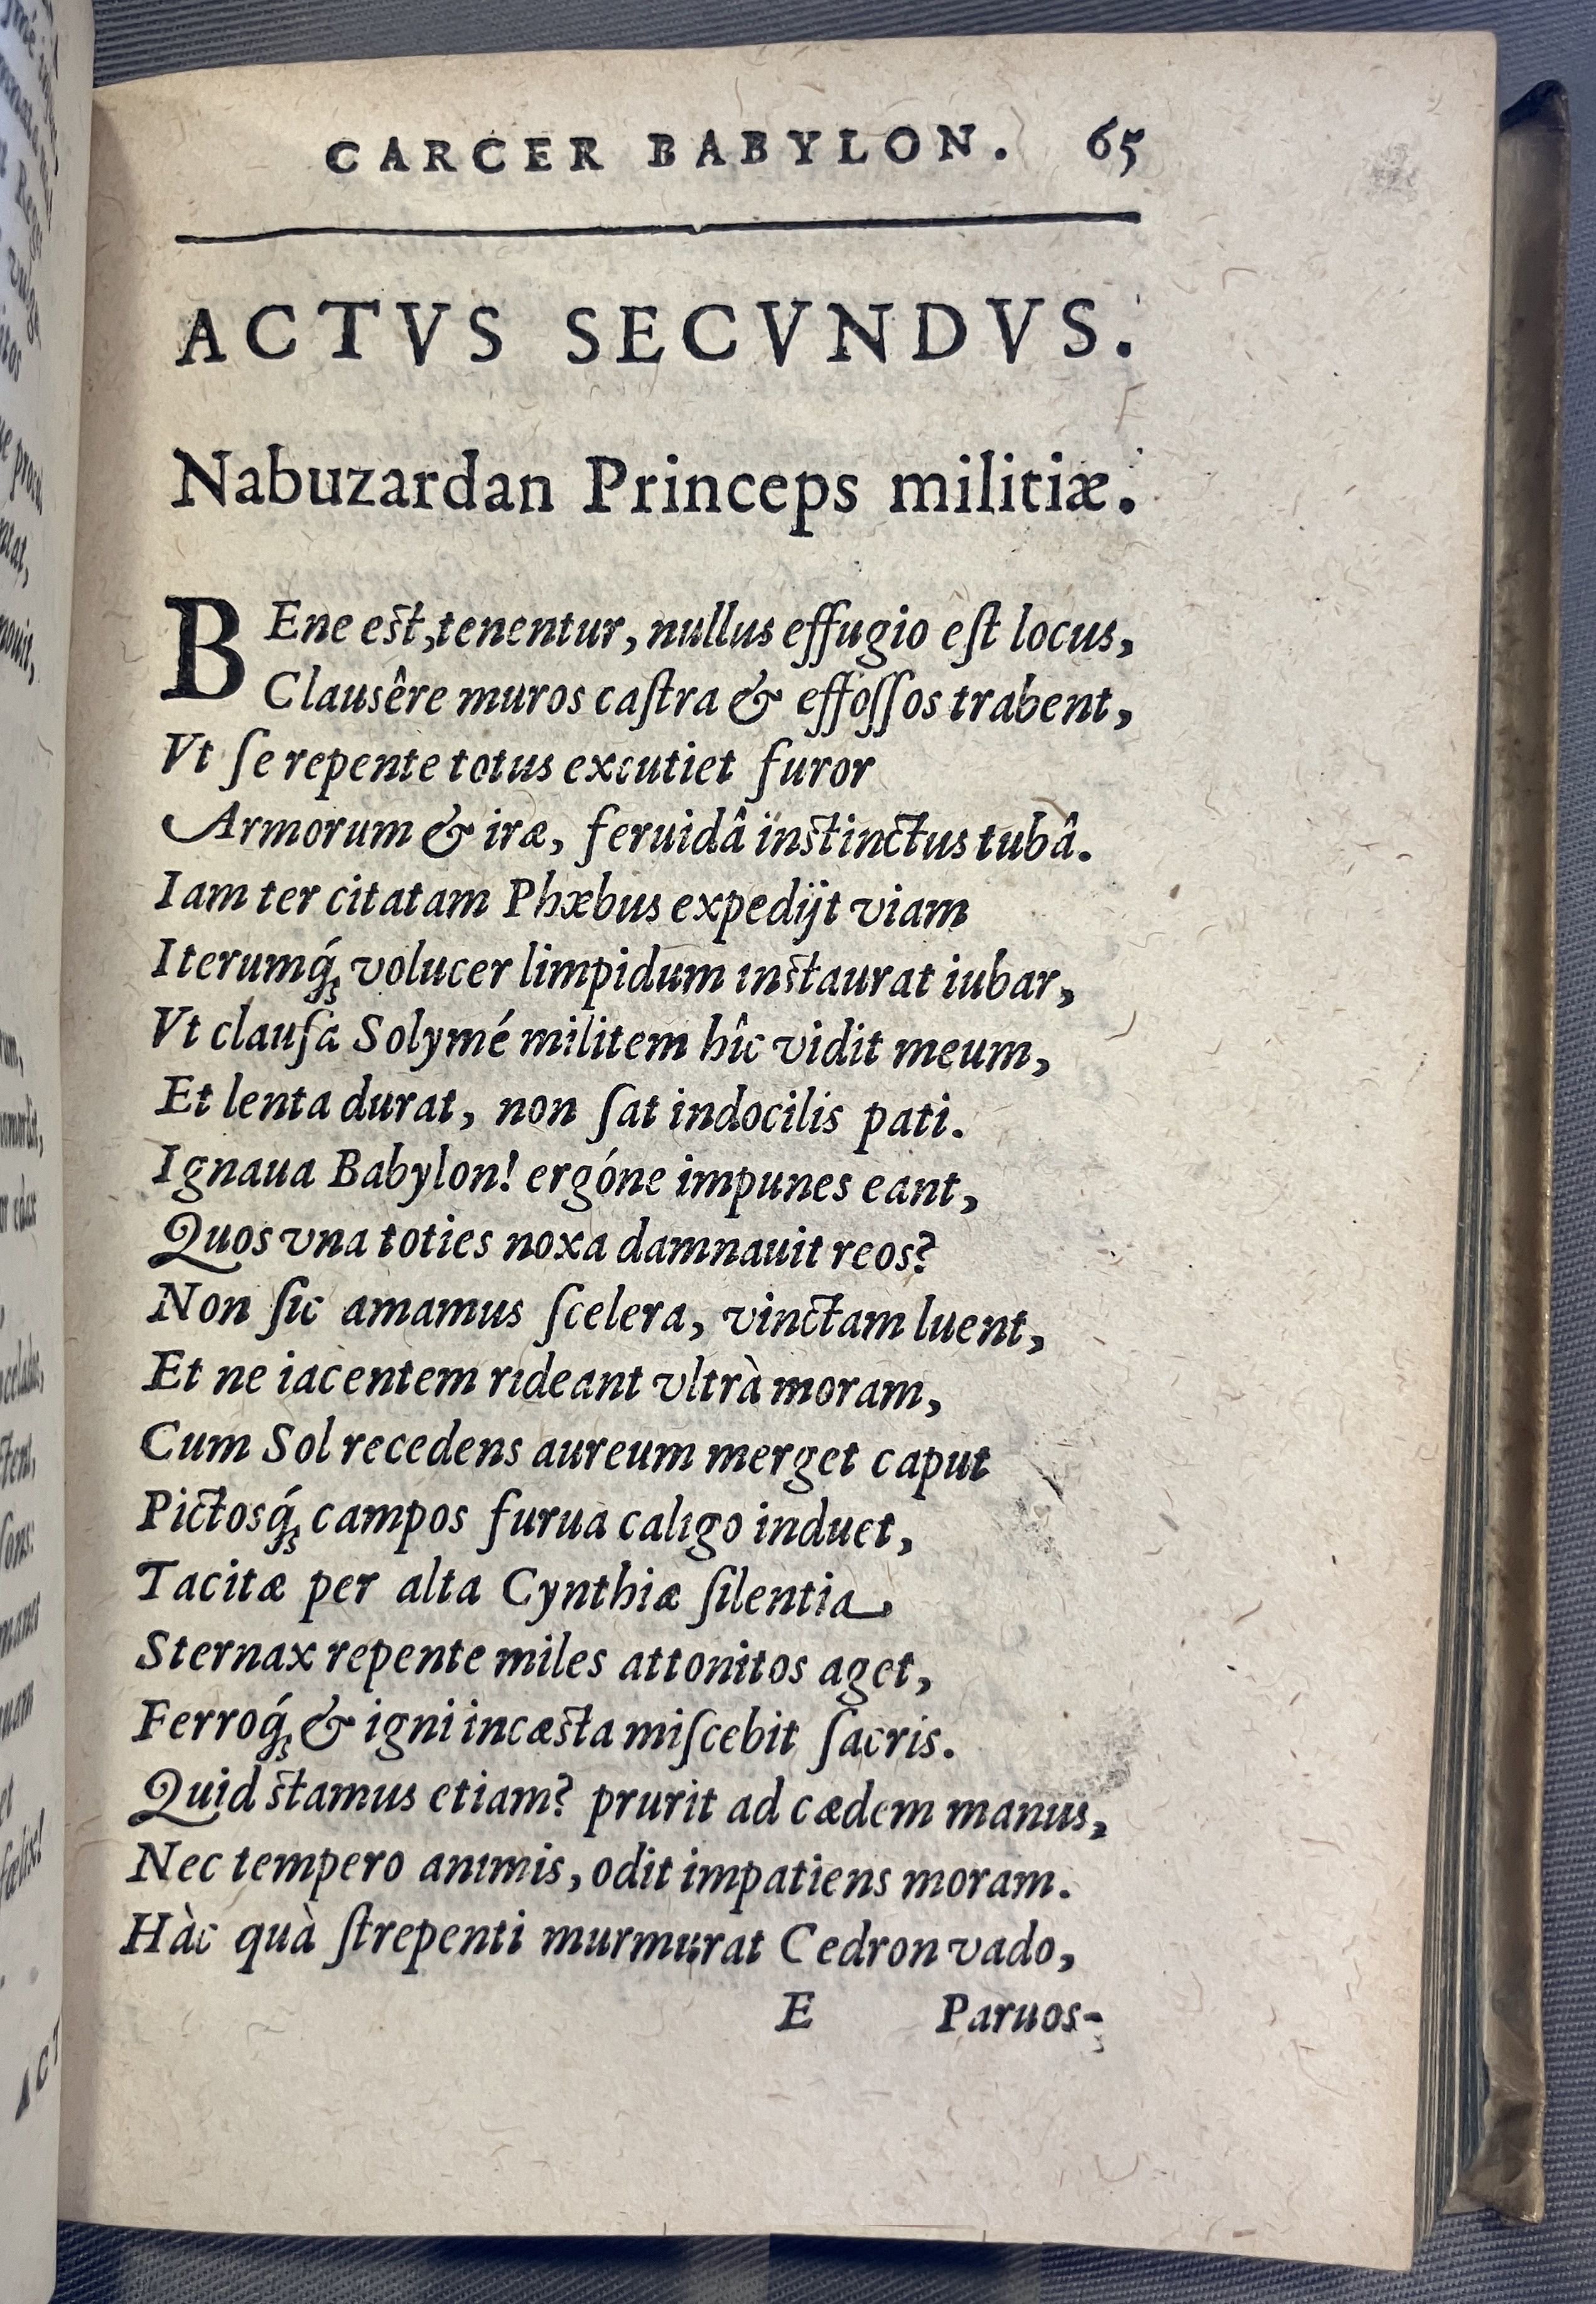 CARCER BABYLON. 65
ACTVS SECVNDVS.
Nabuzardan Princeps militiæ.
BEne est, tenentur, nullus effugio eſt locus,
Clausêre muros caſtra & effoſſos trabent,
Vt ſe repente totus excutiet furor
Armorum & iræ, feruidâ instinctus tubâ.
Iam ter citatam Phæbus expedijt viam
Iterumq́; volucer limpidum instaurat iubar,
Vt clauſa Solymé militem hîc vidit meum,
Et lenta durat, non ſat indocilis pati.
Ignaua Babylon! ergóne impunes eant,
Quos vna toties noxa damnauit reos?
Non ſic amamus ſcelera, vinctam luent,
Et ne iacentem rideant vltrà moram,
Cum Sol recedens aureum merget caput
Pictosq́; campos furua caligo induet,
Tacitæ per alta Cynthiæ ſilentia
Sternax repente miles attonitos aget,
Ferroq́; & igni incæsta miſcebit ſacris.
Quid stamus etiam? prurit ad cædem manus,
Nec tempero animis, odit impatiens moram.
Hàc quà ſtrepenti murmurat Cedron vado,
E Paruos-